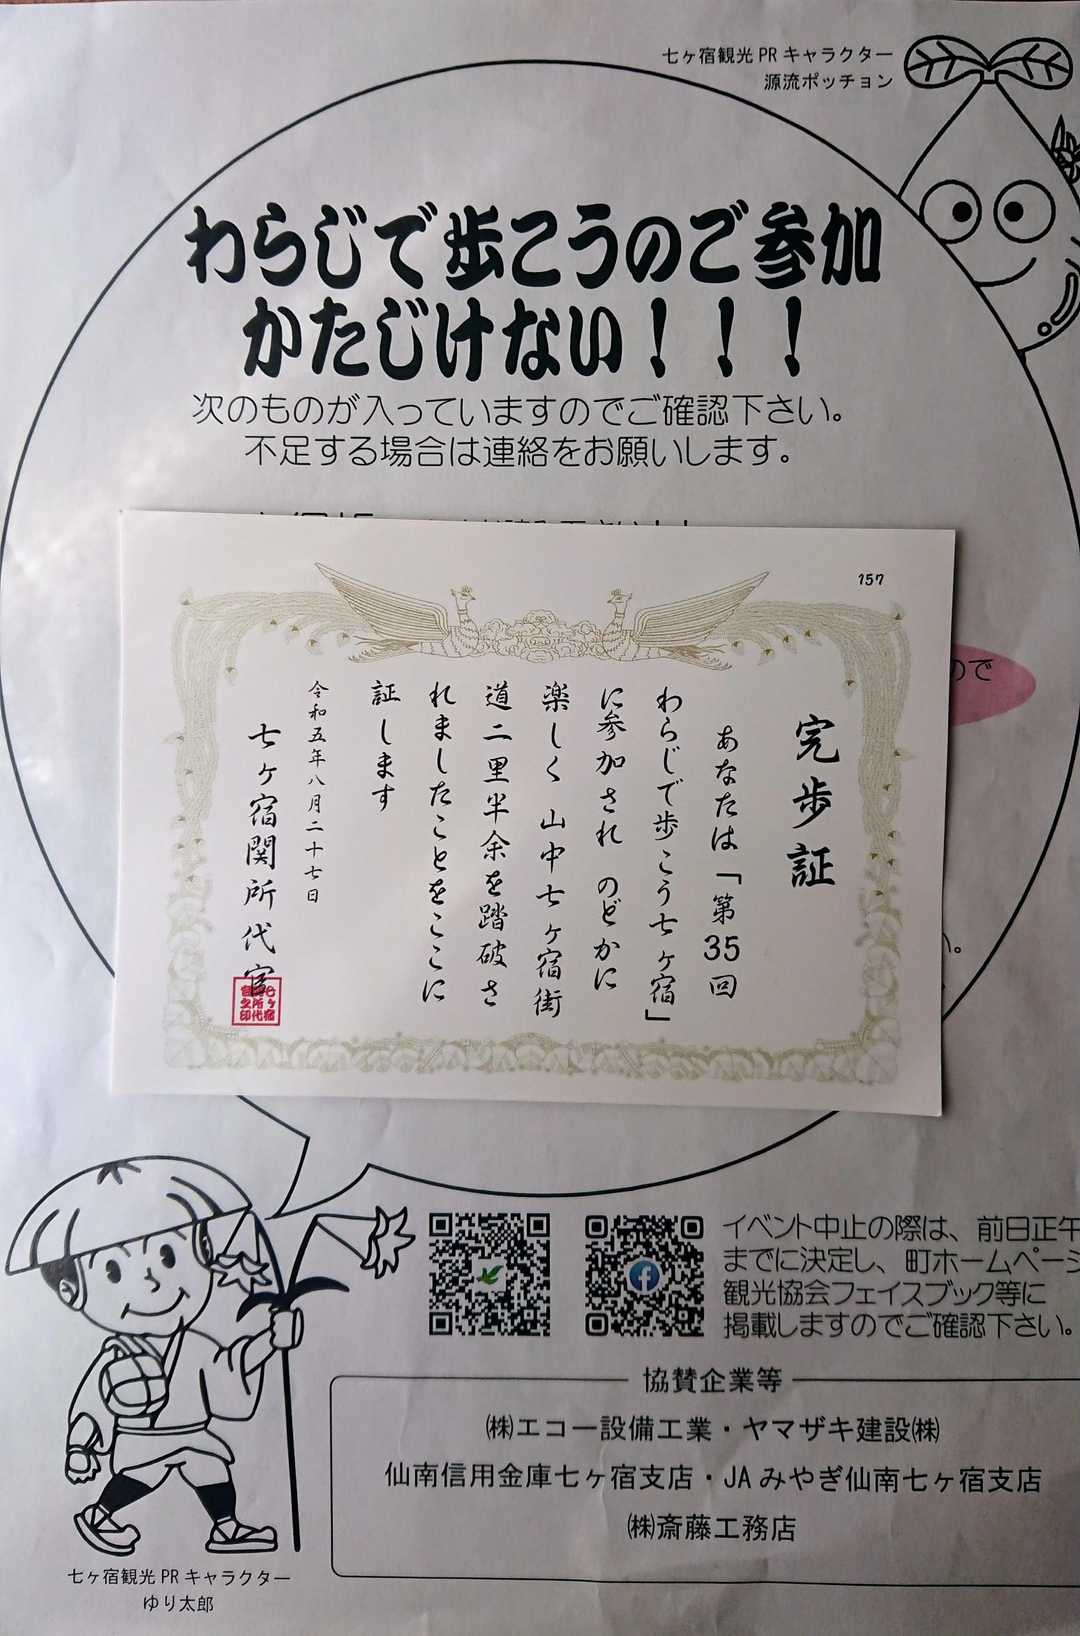 七ヶ宿観光PRキャラクター
源流ポッチョン
わらじで歩こうのご参加
かたじけない！！！
次のものが入っていますのでご確認下さい。
不足する場合は連絡をお願いします。
157
完歩証
あなたは「第35回
わらじで歩こう七ヶ宿」
に参加され のどかに
楽しく 山中七ヶ宿街
道二里半余を踏破さ
れましたことをここに
証します
令和五年八月二十七日
七ヶ宿関所代官
七ヶ宿
関所代
官之印
ので
イベント中止の際は、前日正午
までに決定し、町ホームページ
観光協会フェイスブック等に
掲載しますのでご確認下さい。
協賛企業等
㈱エコー設備工業・ヤマザキ建設㈱
仙南信用金庫七ヶ宿支店・JAみやぎ仙南七ヶ宿支店
㈱斎藤工務店
七ヶ宿観光PRキャラクター
ゆり太郎